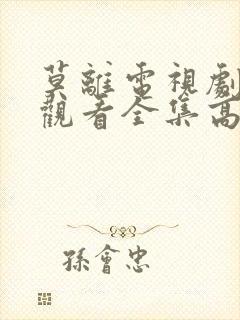 莫離電視劇
觀看全集高
孫會忠